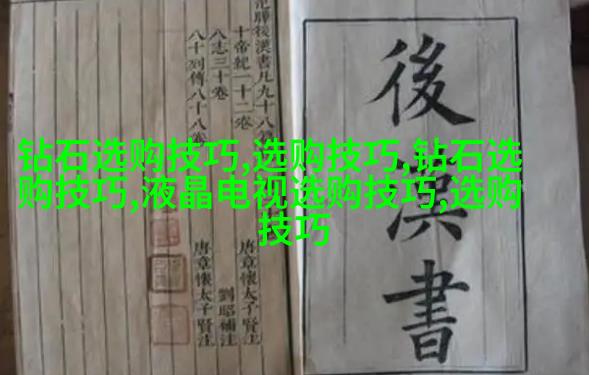 钻石选购技巧,选购技巧,钻石选
购技巧,液晶电视选购技巧,选购
技巧
後漢書
後漢書凡九十八
十帝紀一十二卷 唐章懷太子賢注
八志三十卷 劉昭補注
八十列傳八十八卷 唐章懷太子賢注